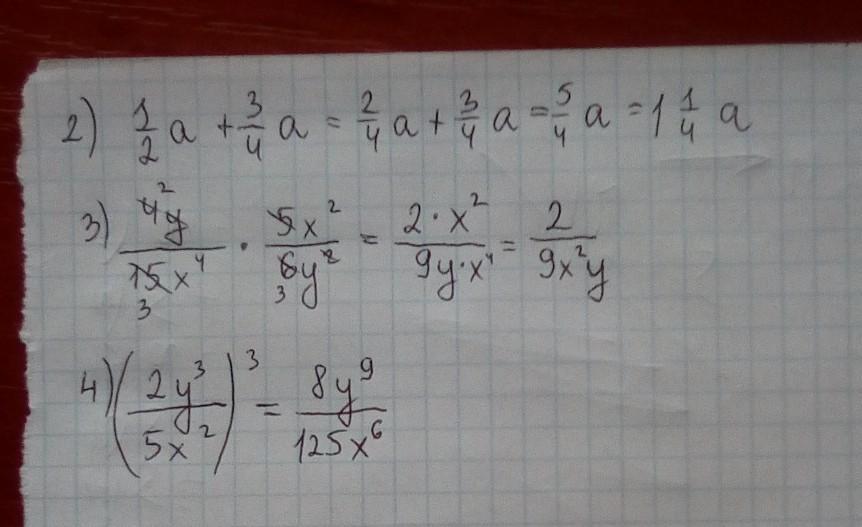 2) 1/2 a + 3/4 a = 2/4 a + 3/4 a = 5/4 a = 1 1/4 a
3) 4²y / 15₃x⁴ · 5x² / 6₃y² = 2·x² / 9y·x⁴ = 2 / 9x²y
4) (2y³ / 5x²)³ = 8y⁹ / 125x⁶